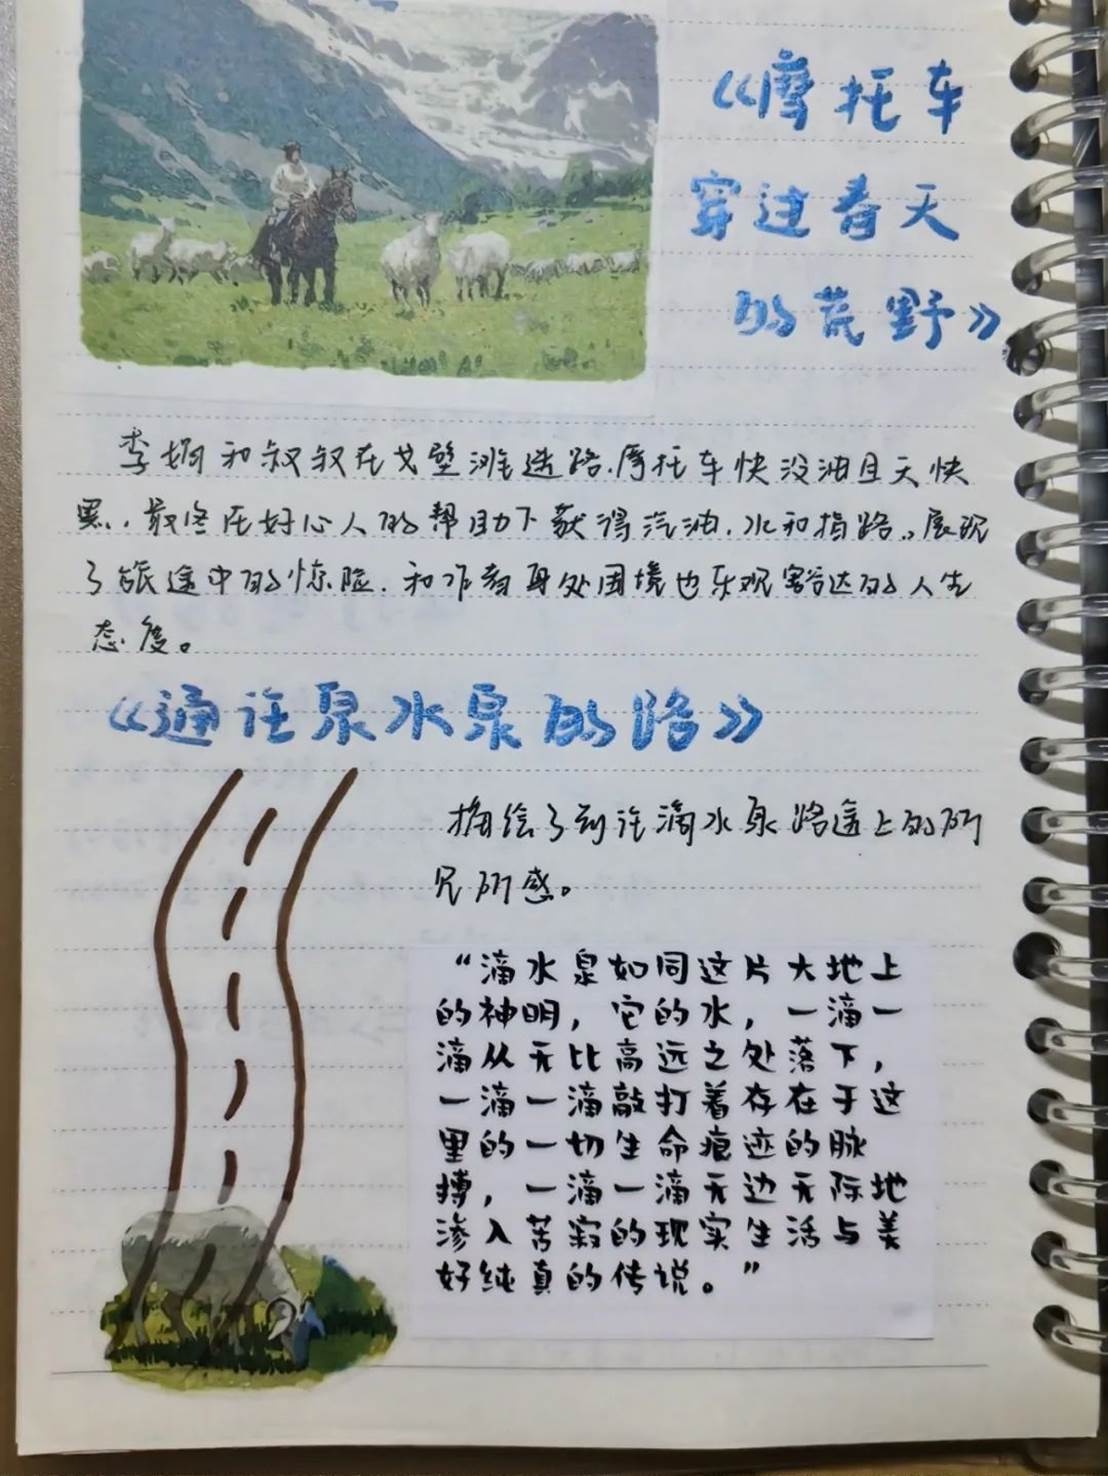 《摩托车
穿过春天
的荒野》
李娟和叔叔在戈壁滩迷路,摩托车快没油且天快
黑,最终在好心人的帮助下获得汽油,水和指路。展现
了旅途中的惊险,和作者身处困境也乐观豁达的人生
态度。
《通往泉水泉的路》
描绘了到往滴水泉路途上的所
见所感。
“滴水泉如同这片大地上
的神明，它的水，一滴一
滴从无比高远之处落下，
一滴一滴敲打着存在于这
里的一切生命痕迹的脉
搏，一滴一滴无边无际地
渗入苦寂的现实生活与美
好纯真的传说。”